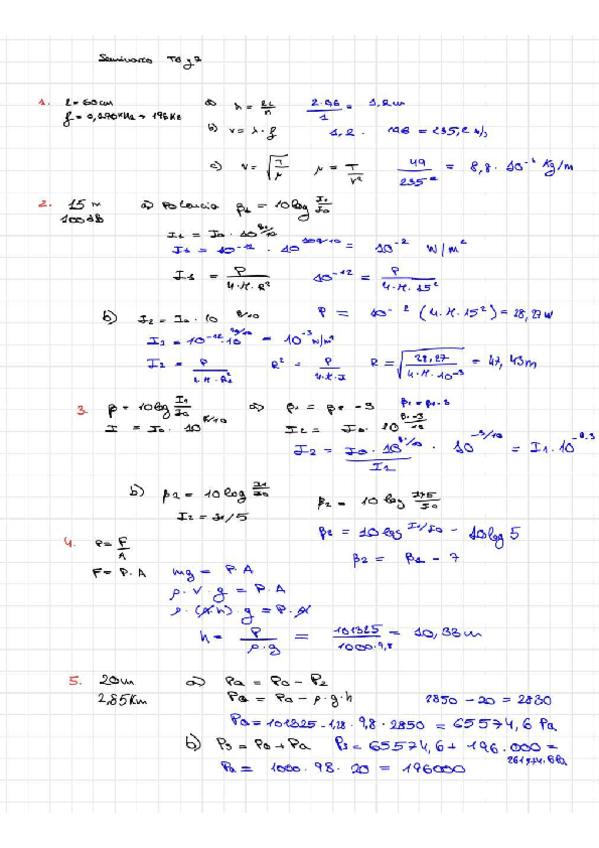 Seminario T6 y 7
1. L = 60cm
f = 0,196KHz → 196Hz
a) λ = 2L/n   2·0,6/1 = 1,2m
b) v = λ · f   1,2 · 196 = 235,2 m/s
c) v = √(T/μ)   μ = T/v²   49/235² = 8,8 · 10⁻⁴ Kg/m
2. 15 m
100dB
a) Potencia β1 = 10log I1/I0
I1 = I0 · 10^(β1/10)
I1 = 10⁻¹² · 10^(100/10) = 10⁻² W/m²
I1 = P/(4·π·R²)   10⁻¹² = P/(4·π·15²)
P = 10⁻² (4·π·15²) = 28,27W
b) I2 = I0 · 10^(β/10)
I2 = 10⁻¹² · 10^(90/10) = 10⁻³ W/m²
I2 = P/(4·π·R2²)   R² = P/(4·π·I)   R = √(28,27/(4·π·10⁻³)) = 47,43m
3. β = 10log I1/I0   a) β2 = β1 - 3   β2 = β1 - 3
I = I0 · 10^(β/10)   I2 = I0 · 10^((β1-3)/10)
I2 = I0 · 10^(β1/10) · 10^(-3/10) = I1 · 10^(-0.3)
I1
b) β2 = 10log I2/I0   β2 = 10 log (I1/5)/I0
I2 = I1/5
β2 = 10log I1/I0 - 10log 5
β2 = β1 - 7
4. P = F/A
F = P · A   mg = P · A
ρ · V · g = P · A
ρ · (A·h) · g = P · A
h = P/(ρ·g) = 101325/(1000·9,8) = 10,33m
5. 20m
2,85Km
a) Pa = P0 - P2
Pa = P0 - ρ·g·h   2850 - 20 = 2830
Pa = 101325 - 1,28 · 9,8 · 2850 = 65574,6 Pa
b) P3 = Pa + Pa   P3 = 65574,6 + 196.000 =
261574,6Pa
Pa = 1000 · 98 · 20 = 196000